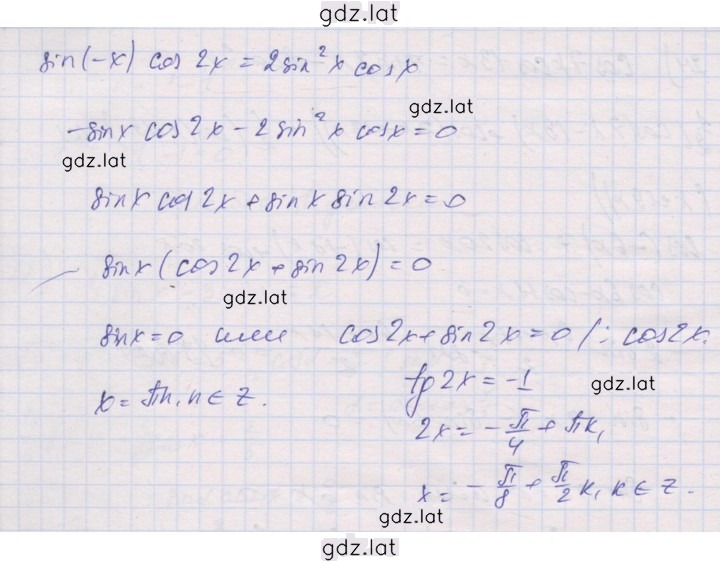 gdz.lat
sin(-x) cos 2x = 2sin²x cosx
gdz.lat
-sinx cos2x - 2sin²x cosx = 0
gdz.lat
sinx cos2x + sinx sin2x = 0
sinx (cos2x + sin2x) = 0
gdz.lat
sinx = 0 или cos2x + sin2x = 0 /: cos2x
x = πn, n ∈ Z. tg2x = -1
gdz.lat
2x = -π/4 + πk,
x = -π/8 + π/2 k, k ∈ Z.
gdz.lat
gdz.lat